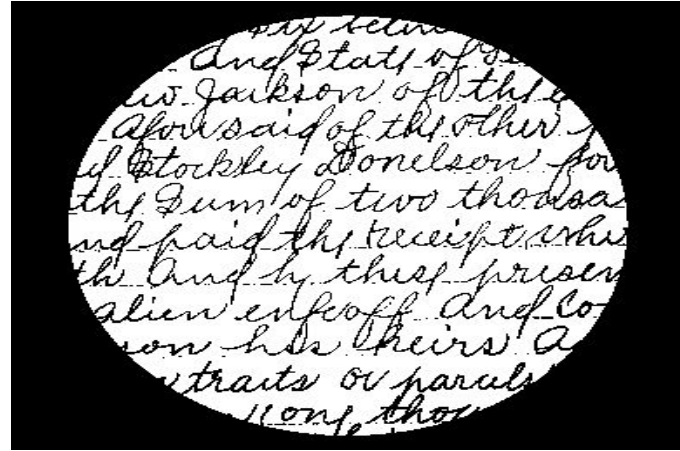 Six betw
And State of
Jackson of the
Aforesaid of the other
Stockley Donelson for
the Sum of two thousa
nd paid the receipt whe
th And by these presen
alien enfeoff And Co
son his heirs A
tracts or parcels
one thou